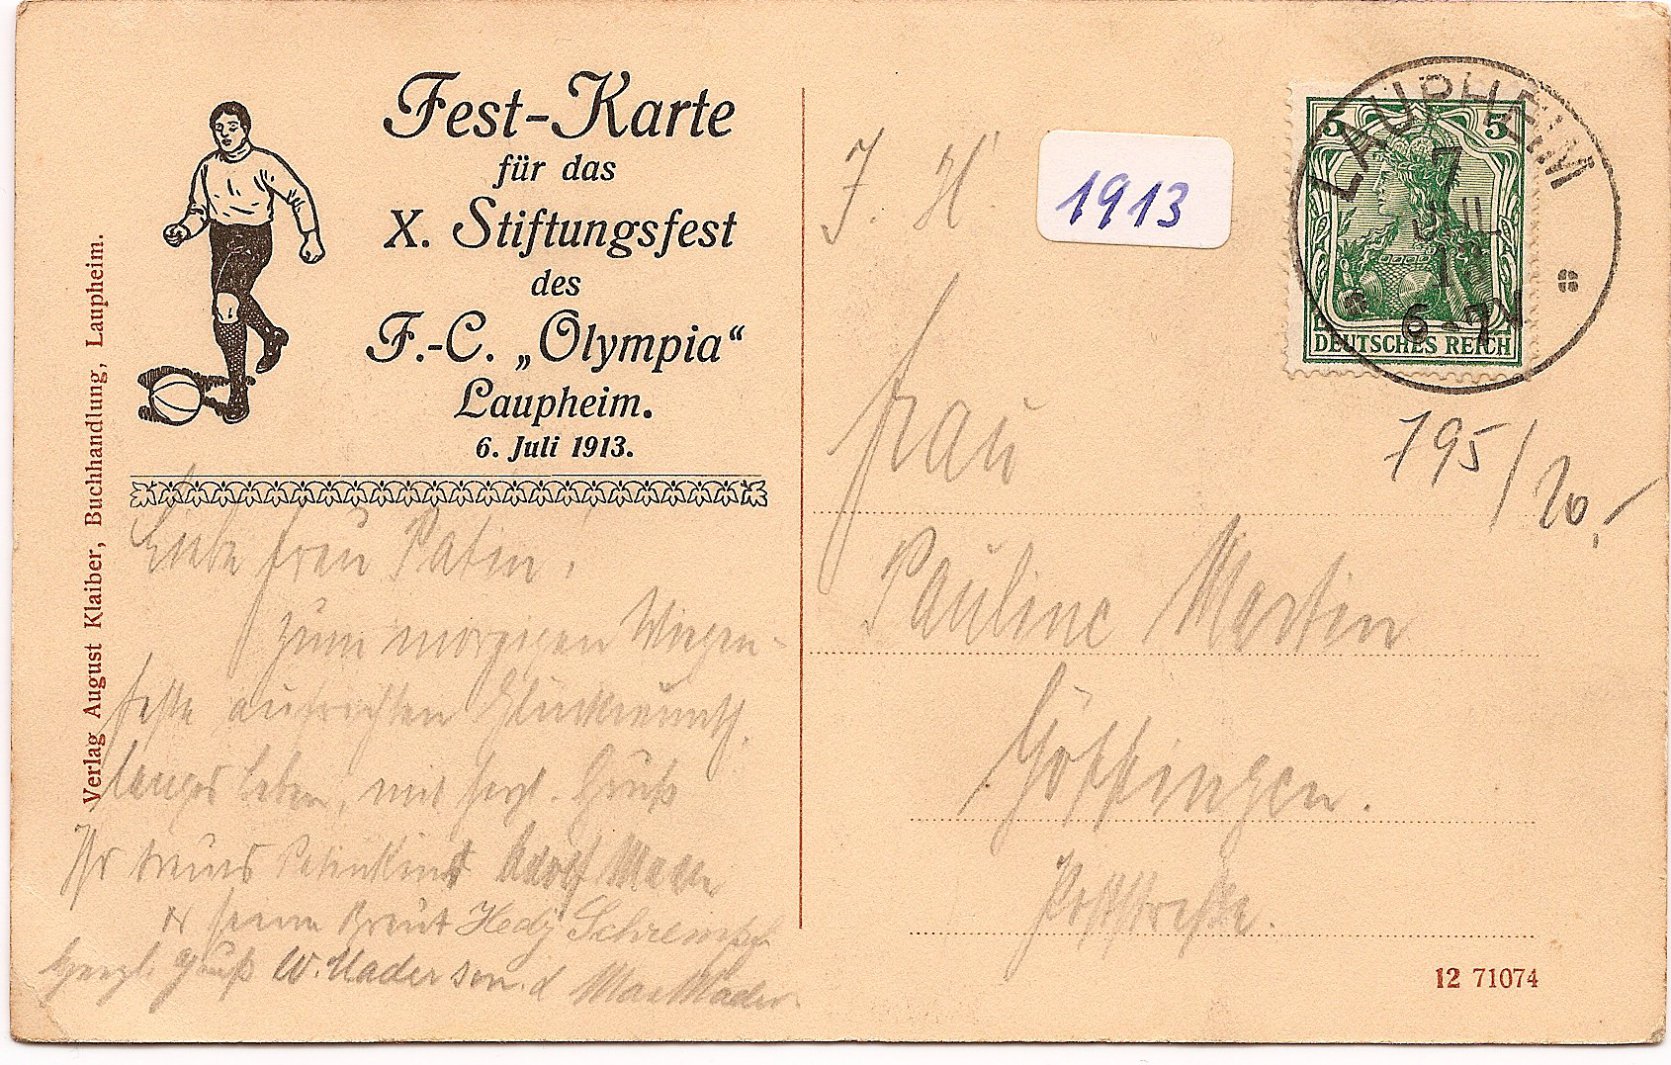 Fest-Karte
für das
X. Stiftungsfest
des
F.-C. „Olympia“
Laupheim.
6. Juli 1913.
Verlag August Klaiber, Buchhandlung, Laupheim.
Liebe Frau Patin!
zum morgigen Wiegen-
feste aufrichten Glückwunsch.
langes Leben, mit herzl. Gruß
Ihr treues Patenkind Adolf Mader
& seine Braut Hedy Schrempf
Herzl. Gruß W. Mader sen. & Max Mader.
J. H.
1913
LAUPHEIM
7
JUL
13
6-7N
5 5
DEUTSCHES REICH
795/20,-
Frau
Pauline Martin
Göppingen.
Poststraße.
12 71074